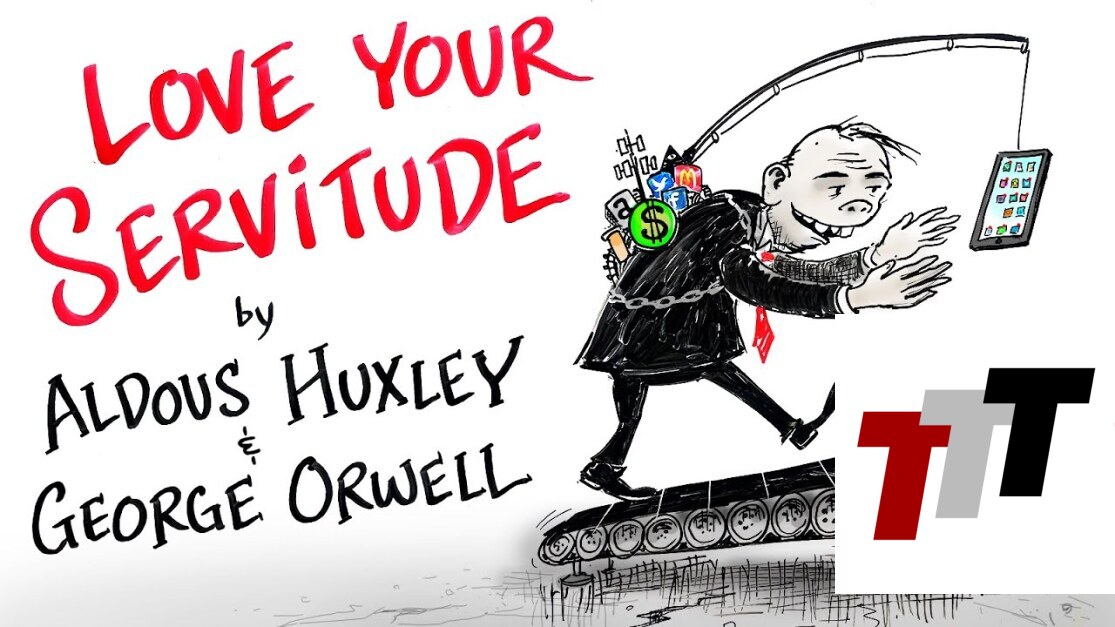 LOVE YOUR
SERViTUDE
by
ALDOUS HUXLEY
&
GEORGE ORWELL
a
$
TTT